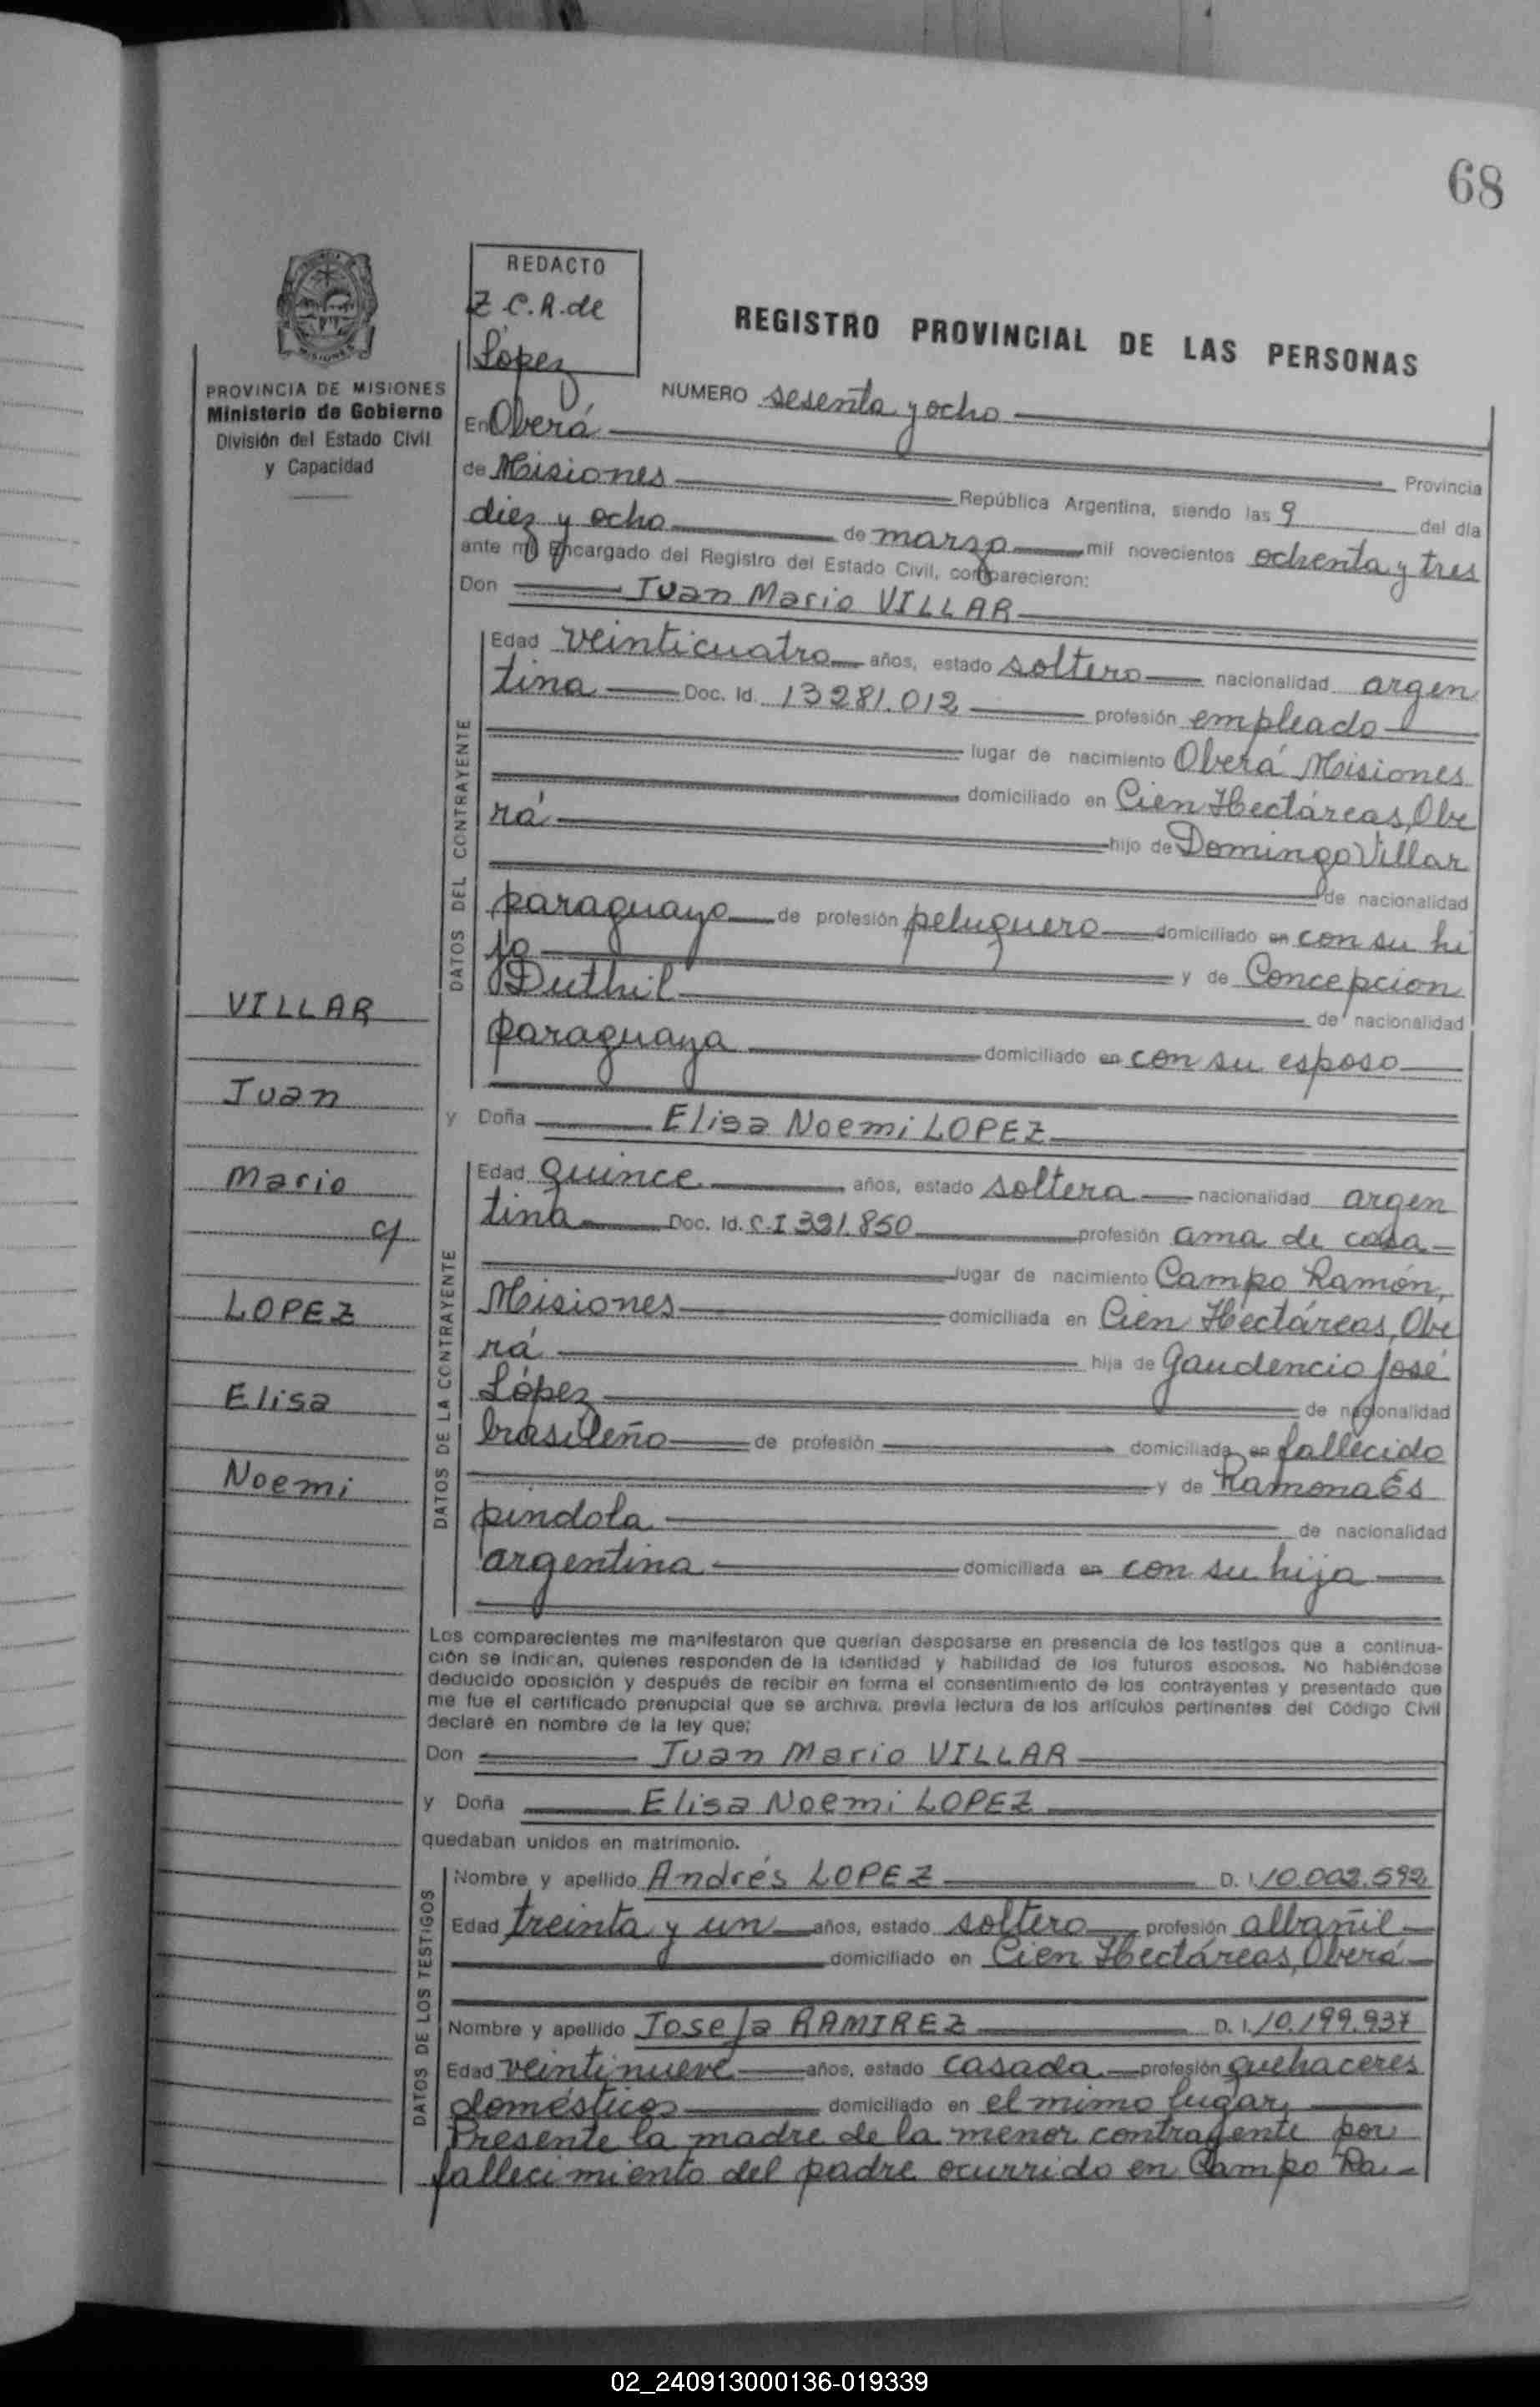 68
REDACTO
Z C.R. de
López
REGISTRO PROVINCIAL DE LAS PERSONAS
PROVINCIA DE MISIONES
Ministerio de Gobierno
División del Estado Civil
y Capacidad
NUMERO sesenta y ocho
En Oberá
Provincia
de Misiones República Argentina, siendo las 9 del día
diez y ocho de marzo mil novecientos ochenta y tres
ante mí Encargado del Registro del Estado Civil, comparecieron:
Don Juan Mario VILLAR
DATOS DEL CONTRAYENTE
Edad veinticuatro años, estado soltero nacionalidad argen
tina Doc. Id. 13281.012 profesión empleado
lugar de nacimiento Oberá Misiones
domiciliado en Cien Hectáreas, Obe
rá hijo de Domingo Villar
de nacionalidad
paraguayo de profesión peluquero domiciliado en con su hi
jo y de Concepcion
Duthil de nacionalidad
paraguaya domiciliado en con su esposo
y Doña Elisa Noemi LOPEZ
DATOS DE LA CONTRAYENTE
Edad quince años, estado soltera nacionalidad argen
tina Doc. Id. C.I 391.850 profesión ama de casa
lugar de nacimiento Campo Ramón,
Misiones domiciliada en Cien Hectáreas, Obe
rá hija de Gaudencio José
López de nacionalidad
brasileño de profesión domiciliada en fallecido
y de Ramona Es
píndola de nacionalidad
argentina domiciliada en con su hija
VILLAR
Juan
Mario
c/
LOPEZ
Elisa
Noemi
Los comparecientes me manifestaron que querían desposarse en presencia de los testigos que a continua-
ción se indican, quienes responden de la identidad y habilidad de los futuros esposos. No habiéndose
deducido oposición y después de recibir en forma el consentimiento de los contrayentes y presentado que
me fue el certificado prenupcial que se archiva, previa lectura de los artículos pertinentes del Código Civil
declaré en nombre de la ley que:
Don Juan Mario VILLAR
y Doña Elisa Noemi LOPEZ
quedaban unidos en matrimonio.
DATOS DE LOS TESTIGOS
Nombre y apellido Andrés LOPEZ D. I. 10.002.592
Edad treinta y un años, estado soltero profesión albañil
domiciliado en Cien Hectáreas, Oberá
Nombre y apellido Josefa RAMIREZ D. I. 10.199.937
Edad veintinueve años, estado casada profesión quehaceres
domésticos domiciliado en el mimo lugar,
Presente la madre de la menor contragente por
fallecimiento del padre ocurrido en Campo Ra-
02_240913000136-019339